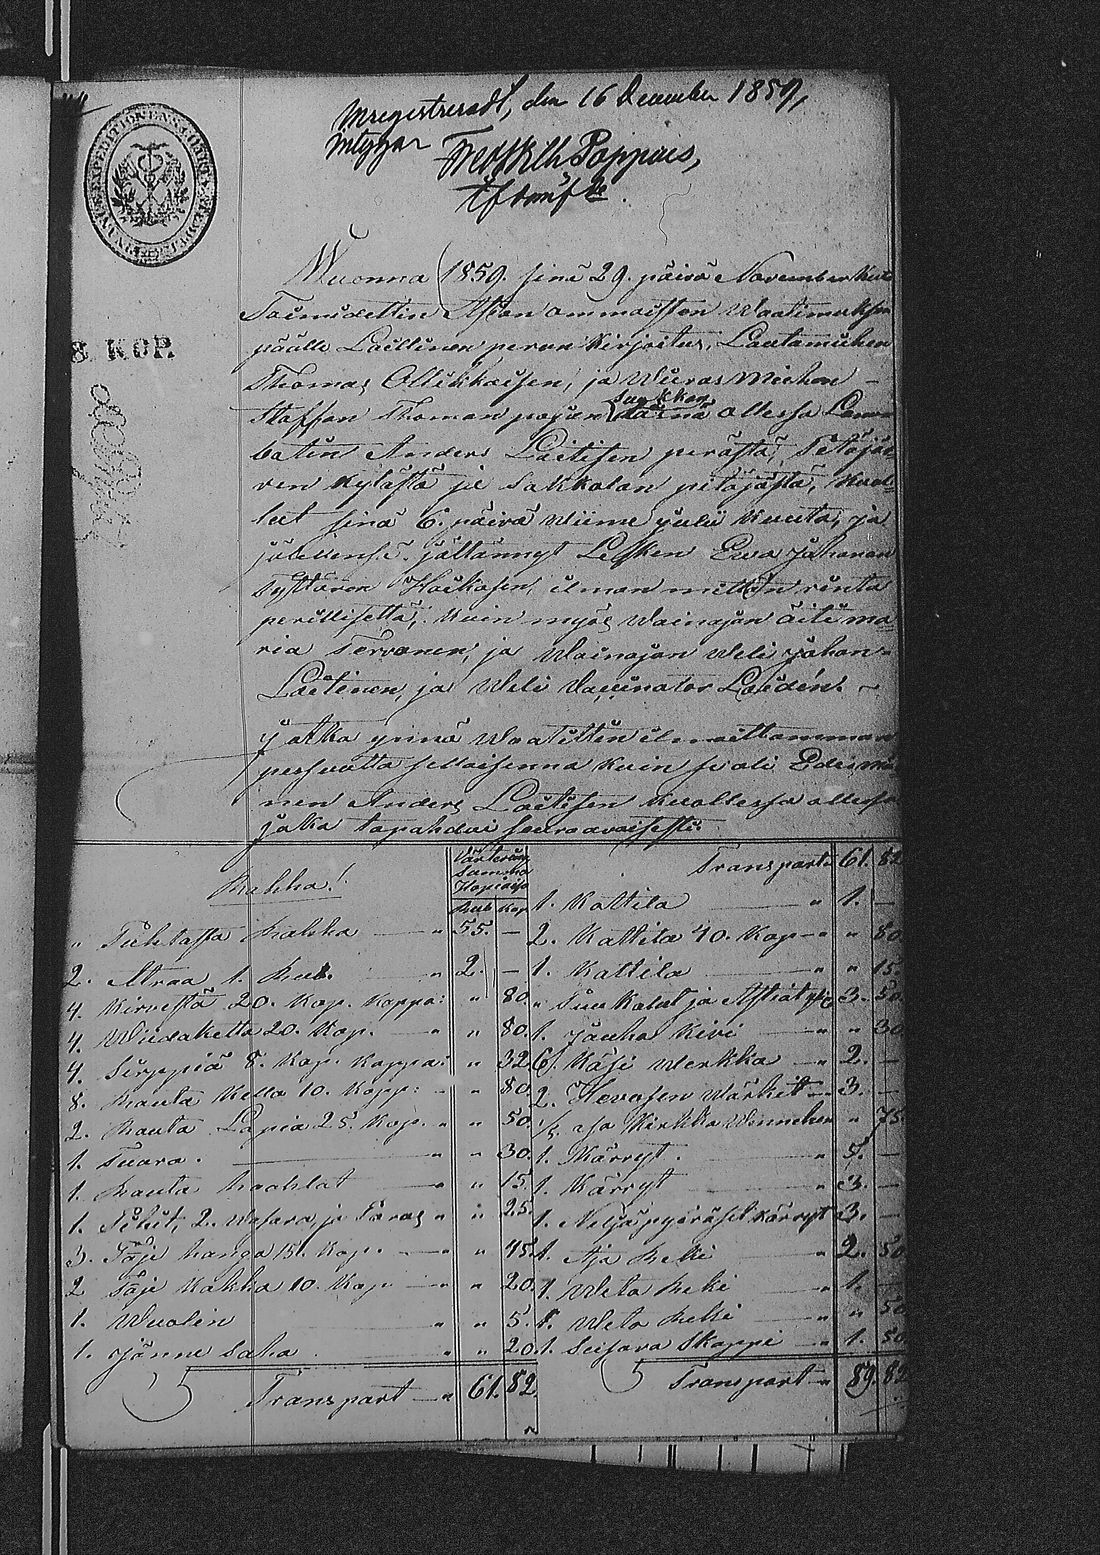 Inregistreradt, den 16 December 1859,
intygar
8. KOP.
Wuonna 1859. sinä 29. päivä November kuuta
Toimidettin Asian ammoisten Waatimuksen
päälle Laillinen perun kirjoitus, Lautamiehen
Thomas Ollikkaisen, ja Wieras Miehen –
Staffan Thoman pojan Suikkan läsnä ollessa
batin Anders Laitisen perästä, Petäjär
ven kylästä ja Sakkolan pitäjästä, kuol
lut sinä 6. päivä wiime Juli kuuta, ja
jälkensä jättännyt Lesken Ewa Johanan
tyttären Koikosen, ilman mittän rinta
perillisettä, kuin myös Wainajan äiti Ma
ria Terwonen, ja Wainajan Weli Johan
Laitinen, ja Weli Vaccinator Laidén. –
jotka ynnä Waatittin ilmoittamman
pesuatta sellaisenna kuin se oli Edesmän
nen Anders Laitisen kuollessa ollessa
joka tapahdui seuraavaisesti:
Rahha!
Rub Kop
" Puhtasta Rahha — " 55. –
2. Atraa 1. Rub. " 2. –
4. Kirvestä 20. Kop. Kappa: " " 80.
4. Wiidaketta 20. Kop. — " " 80.
4. Sirppiä 8. Kop. Kappa: " " 32
8. Rauta Kello 10. Kopp: " " 80.
2. Rauta Lapia 25. Kop. " " 50.
1. Tuura. — " " 30.
1. Rauta — " " 15.
1. Pihit, 2. Wasara, ja Poras " " 25.
3. Täje hanga 15. Kop. — " " 45.
2 Täje Kokka 10. Kop — " " 20.
1. Wuolin " " 5.
1. Jänne Saha. " " 20.
Transport — " 61. 82.
Transport " 61. 82
1. Kattila — " 1. –
2. Kattila 40. Kop — " " 80.
1. Kattila — " " 15.
" Puu Kalut ja Astiat 3. 50.
1. Jauho Kiwi — " " 30
6. Käsi Werkko — " 2. –
2. Hevosen Wärkit — 3. –
" 75.
1. Kärryt. — " 5. –
1. Kärryt — " 3. –
1. Neljäpyöräset kärryt 3. –
1. Aja Reki — " 2. 50
1. Weto Reki — " 1. –
1. Weto Reki — " " 50
1. Seisova Skappi — " 1. 50
Transport " 89. 82